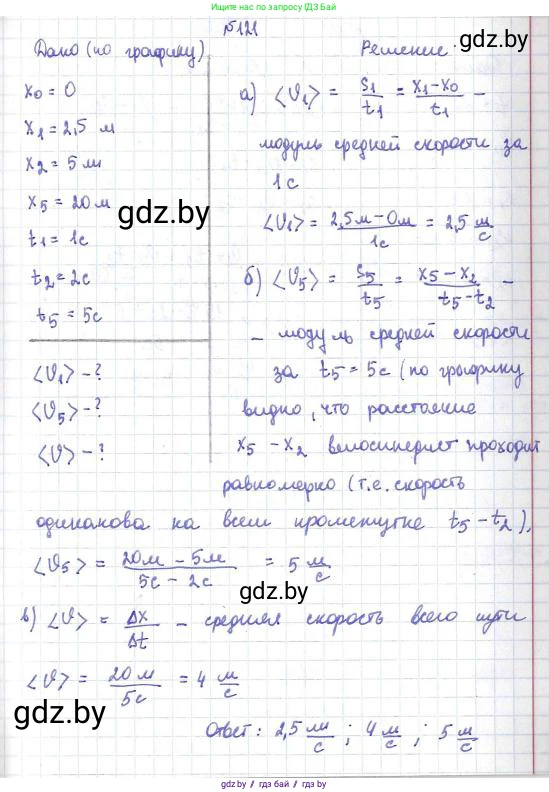 Решение сп запросу гдз by
№ 121
Дано (по графику)
x₀ = 0
x₁ = 2,5 м
x₂ = 5 м
x₅ = 20 м
t₁ = 1с
t₂ = 2с
t₅ = 5с
⟨υ₁⟩ - ?
⟨υ₅⟩ - ?
⟨υ⟩ - ?
Решение
а) ⟨υ₁⟩ = s₁/t₁ = (x₁ - x₀)/t₁ -
модуль средней скорости за
1с
⟨υ₁⟩ = (2,5м - 0м)/1с = 2,5 м/с
б) ⟨υ₅⟩ = s₅/t₅ = (x₅ - x₂)/(t₅ - t₂) -
- модуль средней скорости
за t₅ = 5с (по графику
видно, что расстояние
x₅ - x₂ велосипедист проходит
равномерно (т.е. скорость
одинакова на всем промежутке t₅ - t₂).
⟨υ₅⟩ = (20м - 5м)/(5с - 2с) = 5 м/с
в) ⟨υ⟩ = Δx/Δt - средняя скорость всего пути
⟨υ⟩ = 20м/5с = 4 м/с
Ответ: 2,5 м/с ; 4 м/с ; 5 м/с
gdz.by
gdz.by
gdz.by
gdz.by / гдз бай / гдз бел